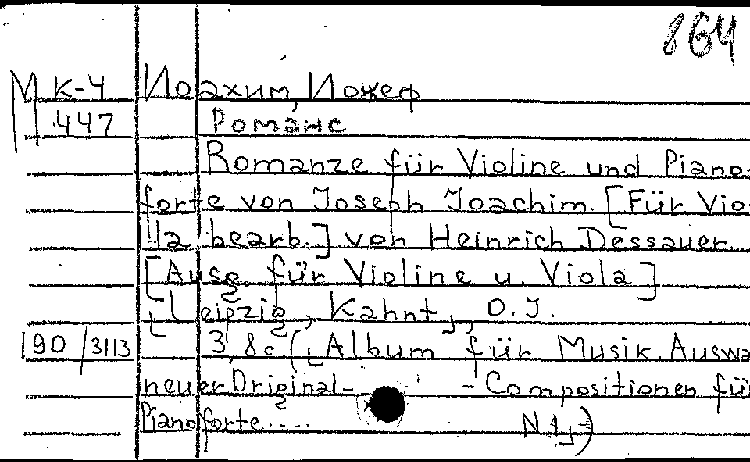 864
М К-4 Иоахим, Иожеф
447 Романс
Romanze für Violine und Piano-
forte von Joseph Joachim. [Für Vio-
lla bearb.] von Heinrich Dessauer
[Ausg. für Violine u. Viola]
[Leipzig, Kahnt], O.J.
90/3113 3, 8c (Album für Musik. Auswa
neuer Original- -Compositionen fü
Pianoforte.... N 1])